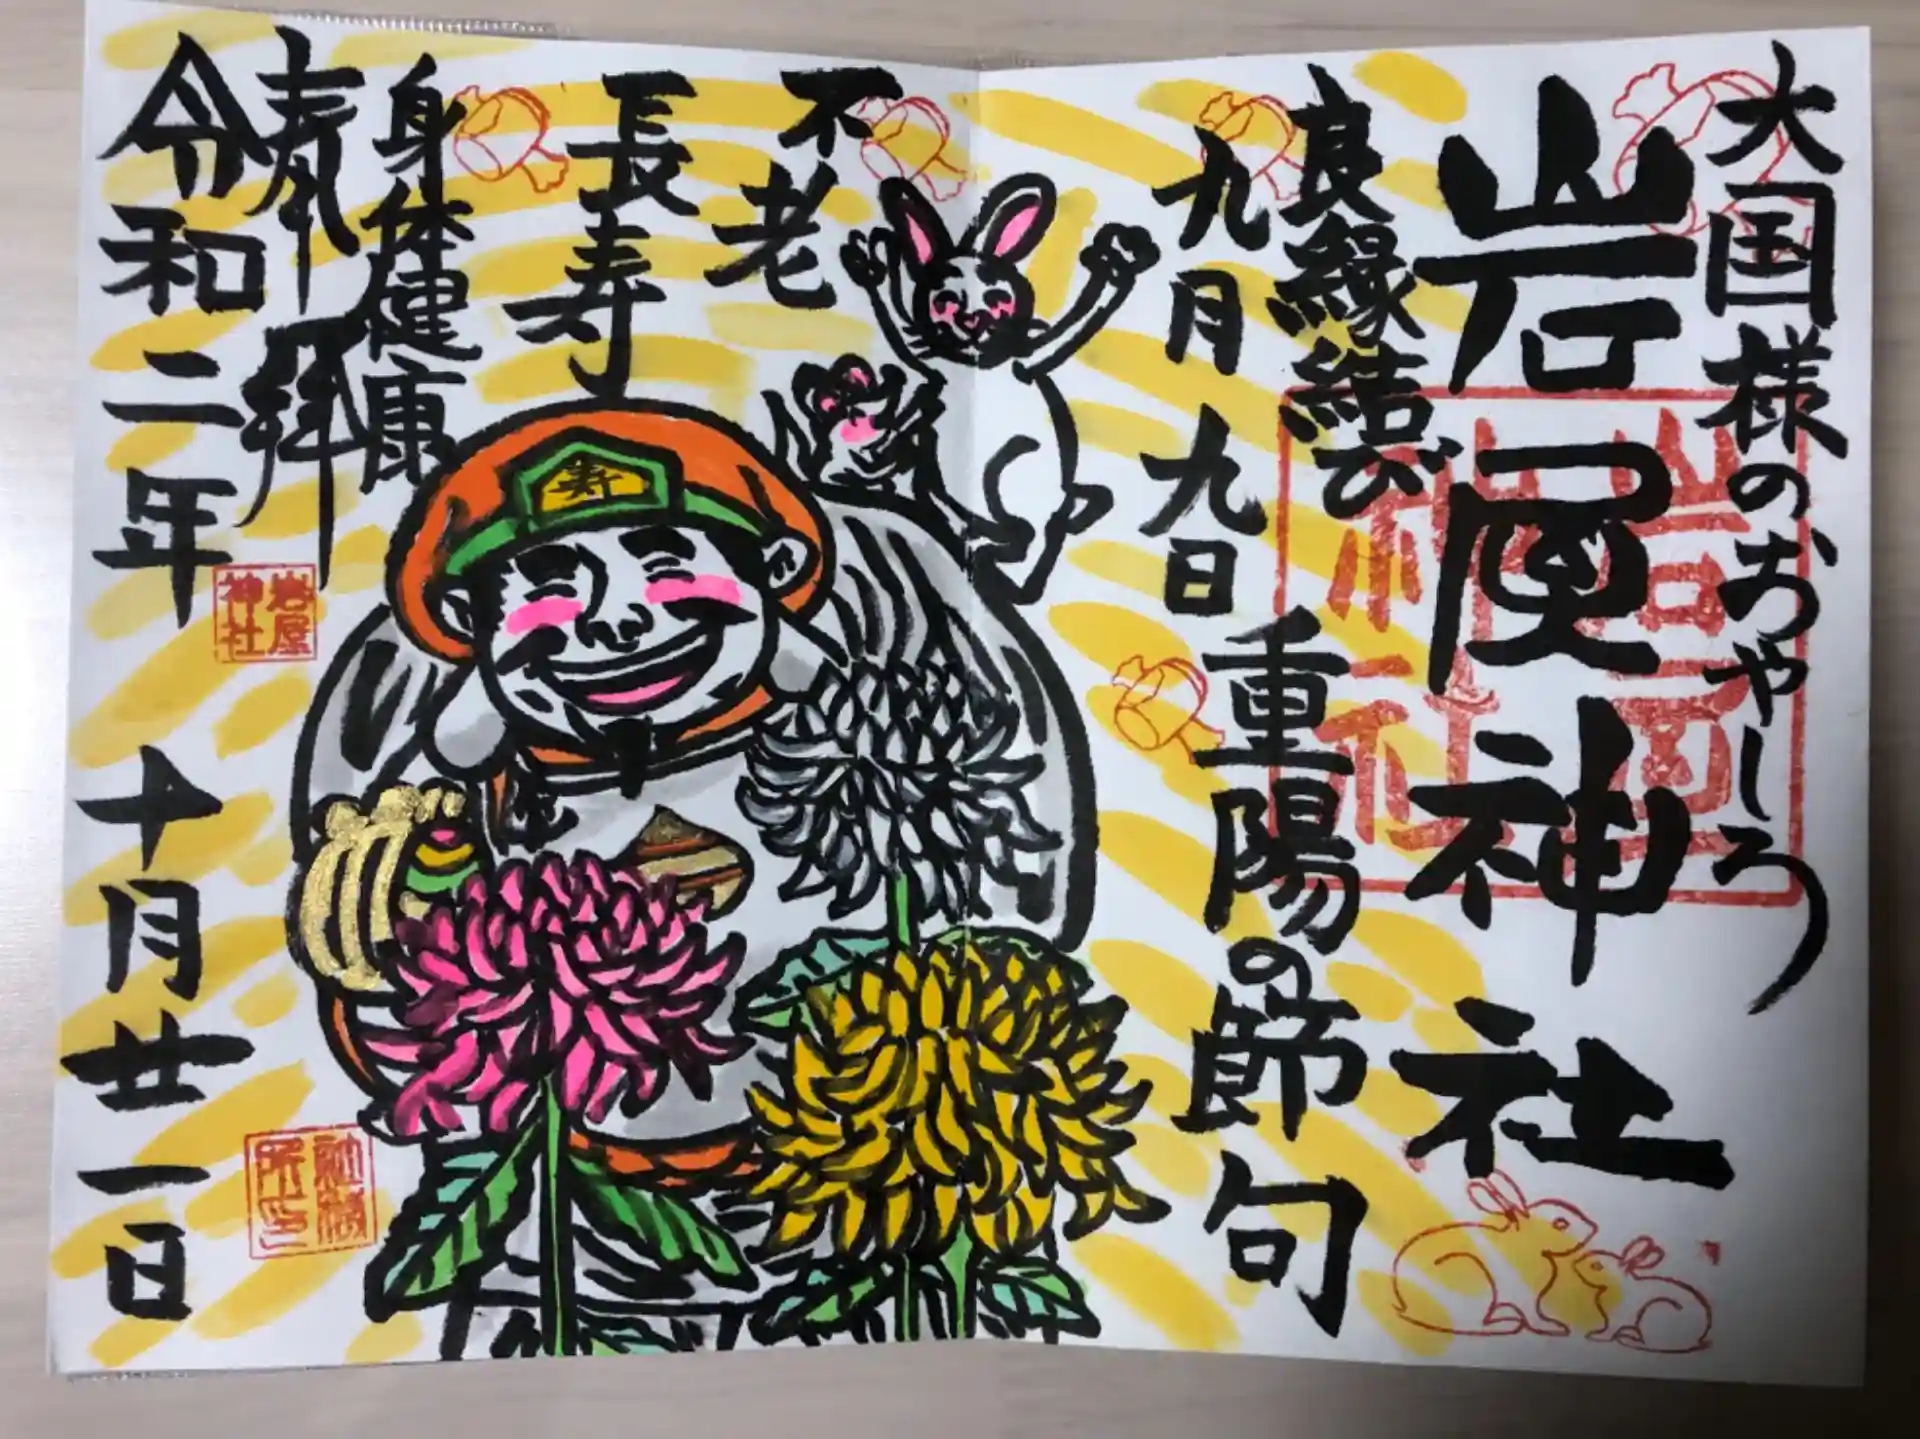 大国様のおやしろ
岩屋神社
良縁結び
九月九日
重陽の節句
不老
長寿
身体健康
奉拝
令和二年十月廿一日
寿
岩屋
神社